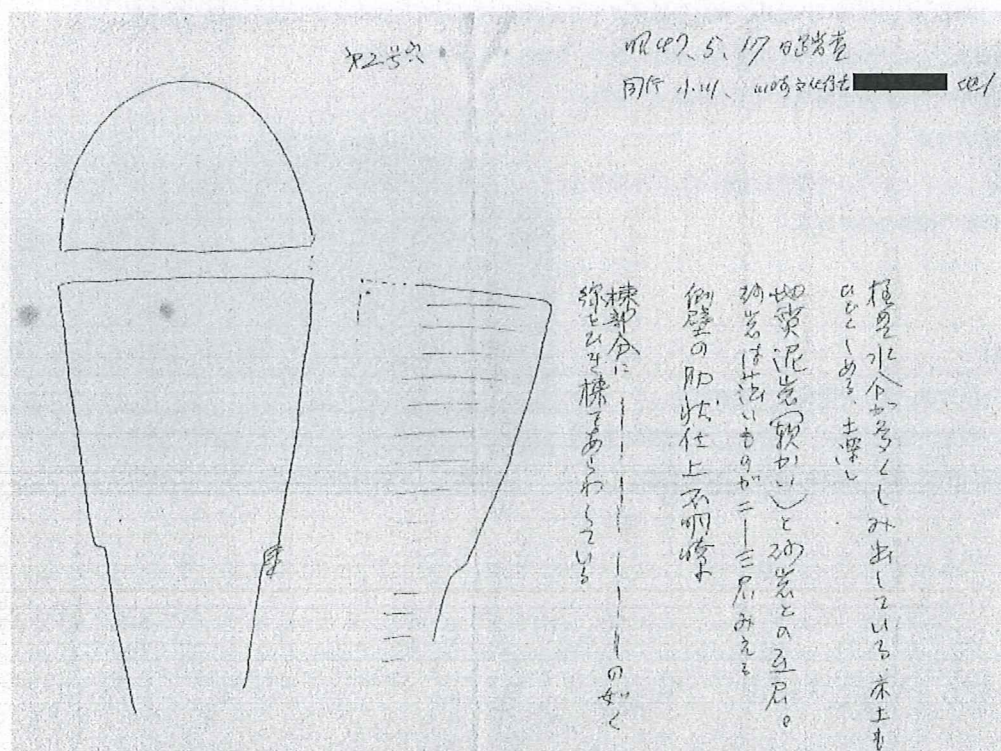 第2号穴
昭47、5、17日踏査
同行 小川、
極堅水分が多くしみ出している、床土も
ひどくしめる、土深し
地質泥岩(軟かい)と砂岩との互层。
砂岩は薄いものが二ー三层みえる
側壁の肋状仕上不明瞭
棟部分に ーーーーーーーの如く
線をひき棟をあらわしている